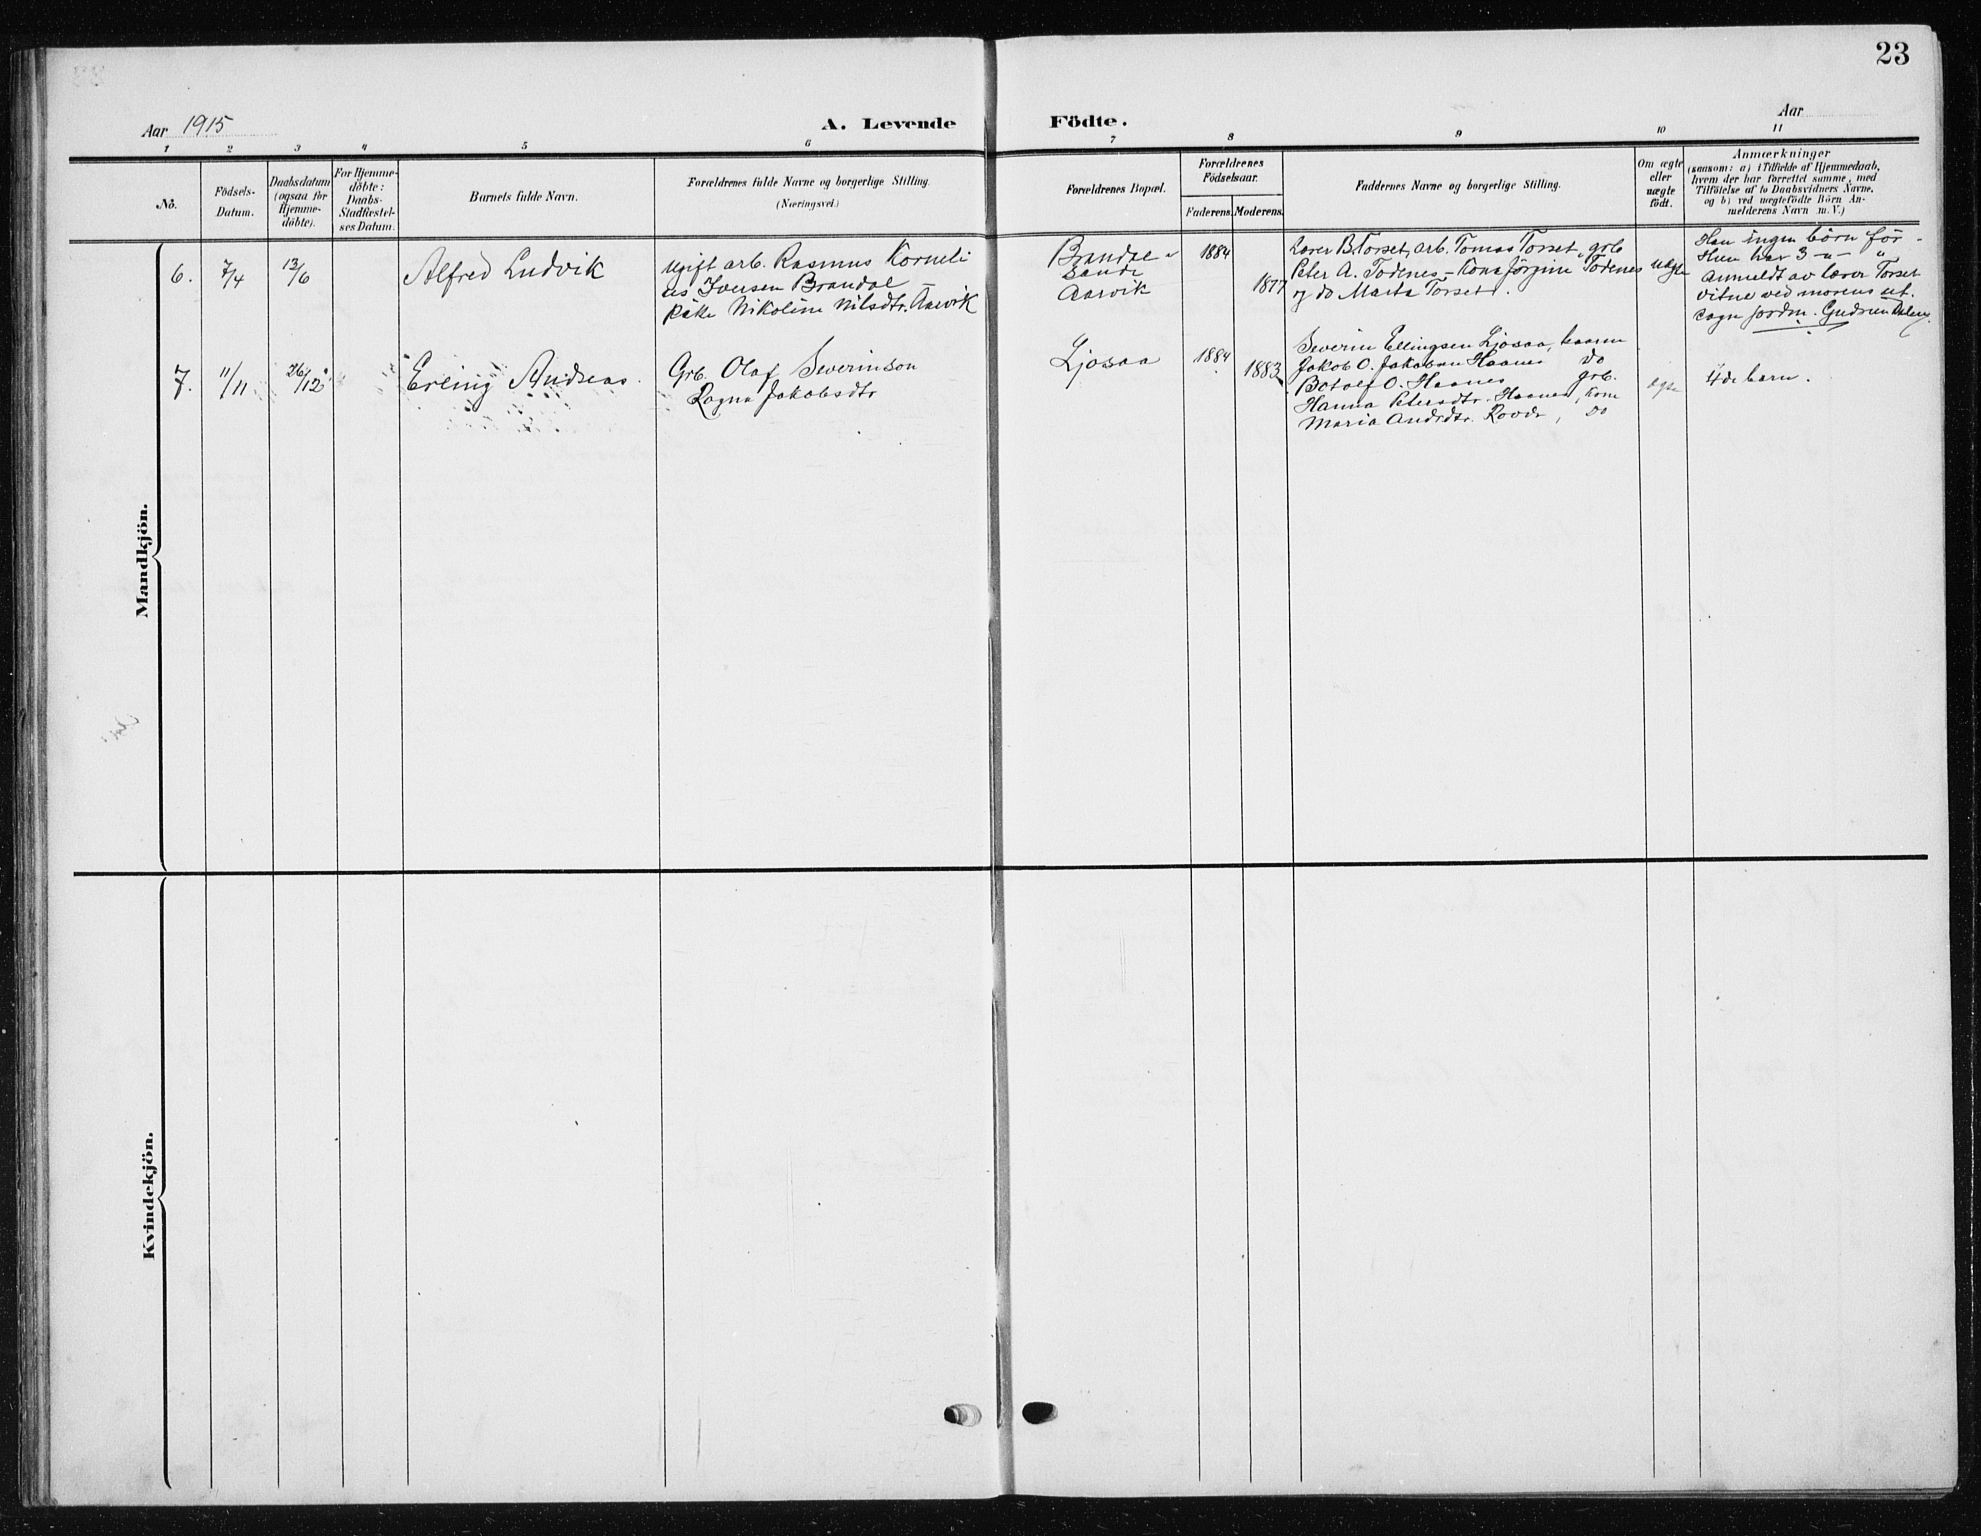 23
Aar 1915
A. Levende Födte.
Aar
1 2 3 4 5 6 7 8 9 10 11
No.
Födsels-
Datum.
Daabsdatum
(ogsaa for
Hjemme-
döbte).
For Hjemme-
döbte:
Daabs-
Stadfæstel-
ses Datum.
Barnets fulde Navn.
Forældrenes fulde Navne og borgerlige Stilling.
(Næringsvei.)
Forældrenes Bopæl.
Forældrenes
Födselsaar.
Faderens. Moderens.
Faddernes Navne og borgerlige Stilling.
Om ægte
eller
uægte
födt.
Anmærkninger
(saasom: a) i Tilfælde af Hjemmedaab,
hvem der har forrettet samme, med
Tilföielse af to Daabsvidners Navne,
og b) ved uægtefödte Börn An-
melderens Navn m. V.)
Mandkjön.
6.
7/4
13/6
Alfred Ludvik
Ugift arb. Rasmus Korneli
us Iversen Brandal
Pike Nikoline Nilsdtr. Aarvik
Brandal
Sande
Aarvik
1884
1877
Lærer B. Torset, arb. Tomas Torset, grb
Peter A. Todenes - Kona Jørgine Todenes
og do Marta Torset.
uægte
Han ingen børn før -
Hun har 3 - " - "
Anmeldt av lærer Torset
Vitne ved morens ut.
sagn jordm. Gudrun
7.
11/11
26/12
Erling Andreas.
Grb. Olaf Severinson
Ragna Jakobsdtr
Ljosaa
1884
1883
Severin Ellingsen Ljosaa, kaarm
Jakob O. Jakobsen Haanes do
Botolf O. Haanes grb.
Hanna Petersdtr. Haanes, kone
Maria Andrdtr. Rovde, do
ægte
4de barn.
Kvindekjön.